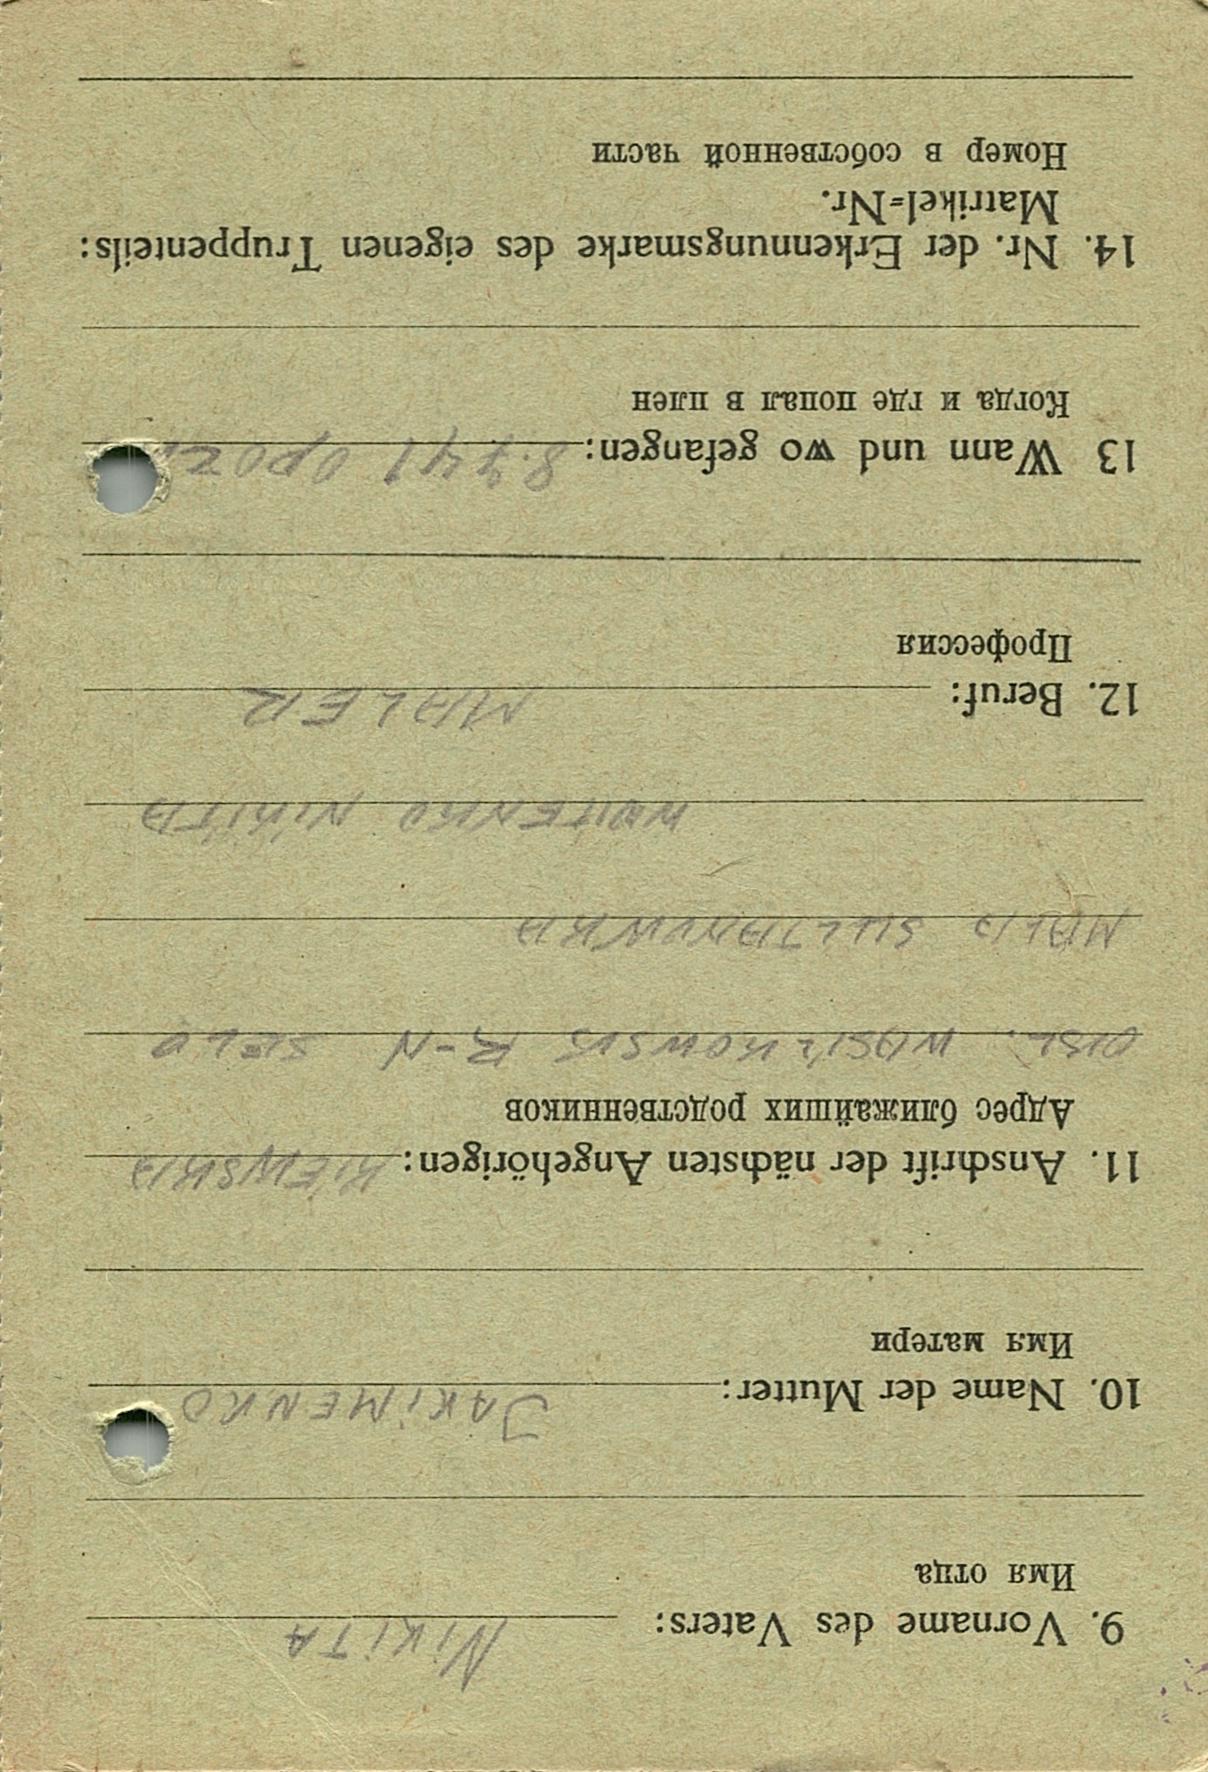 9. Vorname des Vaters: NIKITA
Имя отца
10. Name der Mutter: JAKIMENKO
Имя матери
11. Anschrift der nächsten Angehörigen: KIEWSKA
Адрес ближайших родственников
OBL. WASILKOWSK R-N SELO
MALA SULTANOWKA
WOITENKO NIKITA
12. Beruf: MALER
Профессия
13 Wann und wo gefangen: 8.7.41
Когда и где попал в плен
14. Nr. der Erkennungsmarke des eigenen Truppenteils:
Matrikel=Nr.
Номер в собственной части